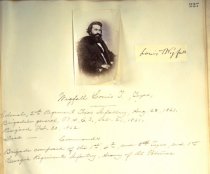 227
Louis Wigfall
Wigfall Louis T. Texas.
Colonel, 2nd Regiment Texas Infantry, Aug 28, 1861.
Brigadier general, P.A.C.S. Oct 21, 1861.
Resigned, Feb. 20, 1862.
Commands
Brigade composed of the 1st, and Texas, and
Georgia Regiments Infantry, Army of the Potomac